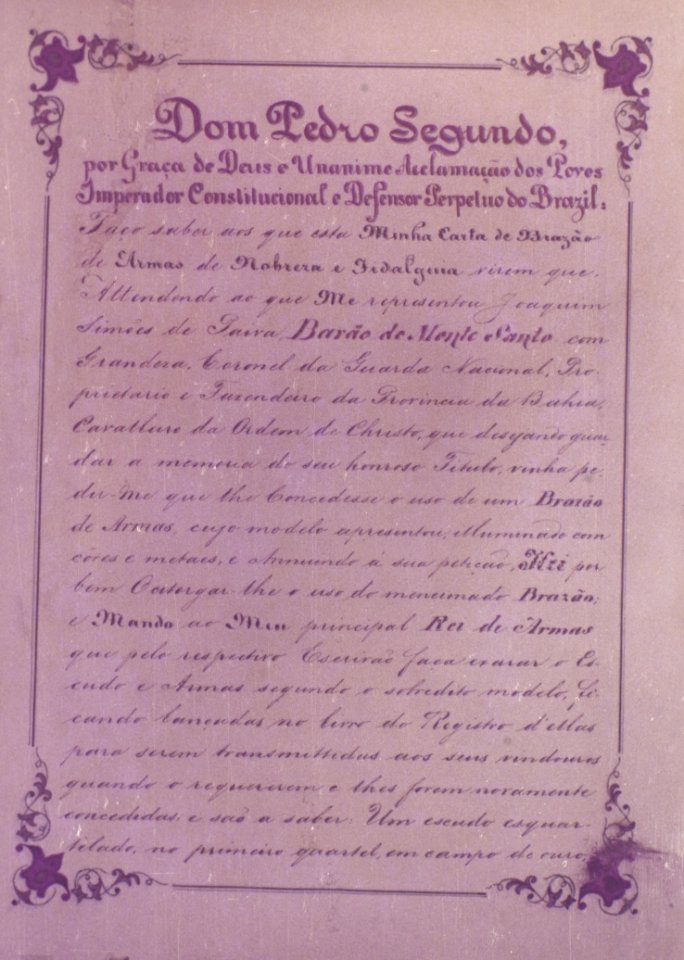 Dom Pedro Segundo,
por Graça de Deus e Unanime Acclamação dos Povos
Imperador Constitucional e Defensor Perpetuo do Brazil:
Faço saber aos que esta Minha Carta de Brazão
de Armas de Nobreza e Fidalguia virem que,
Attendendo ao que Me representou Joaquim
Simões de Paiva Barão de Monte Santo com
Grandeza, Coronel da Guarda Nacional, Pro-
prietario e Fazendeiro da Provincia da Bahia,
Cavalleiro da Ordem de Christo, que desejando guar-
dar a memoria do seu honroso Titulo, vinha pe-
dir-Me que lhe Concedesse o uso de um Brazão
de Armas, cujo modelo apresentou, illuminado com
côres e metaes, e Annuindo á sua petição, Hei por
bem Outorgar-lhe o uso do mencionado Brazão;
e Mando ao Meu principal Rei de Armas
que pelo respectivo Escrivão faça exarar o Es-
cudo e Armas segundo o sobredito modelo, fi-
cando lançadas no livro do Registro d'ellas
para serem transmittidas aos seus vindouros
quando o requererem e lhes forem novamente
concedidas; e são a saber: Um escudo esquar-
telado, no primeiro quartel, em campo de ouro,